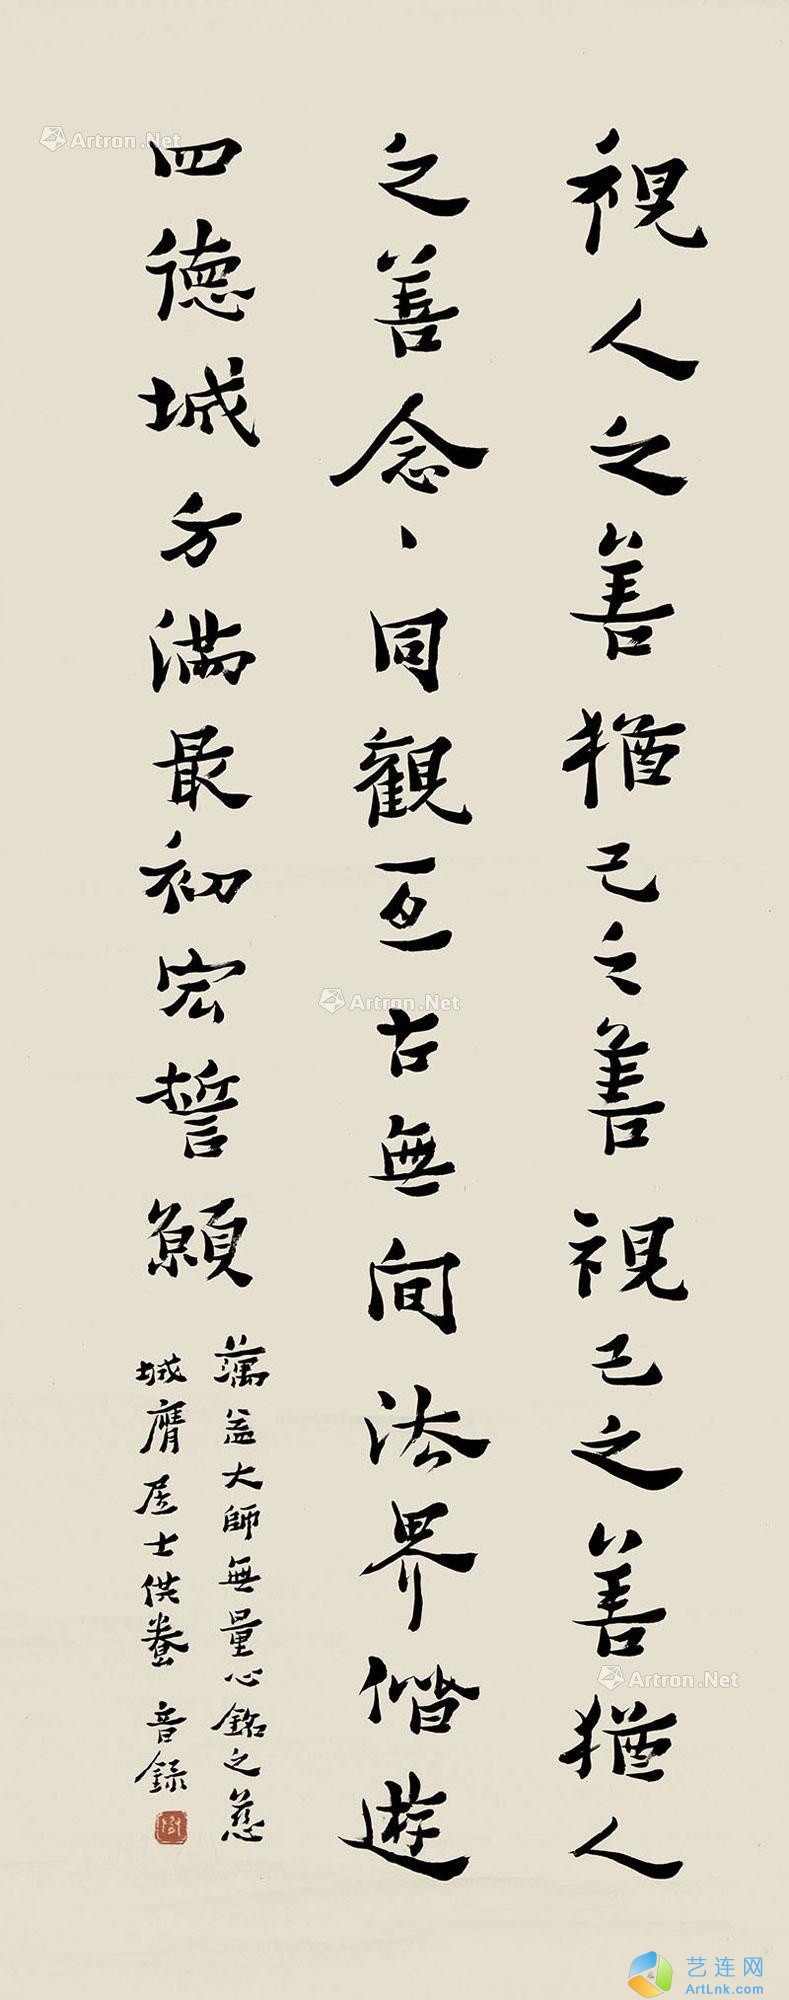 視人之善猶己之善視己之善猶人
之善念、同觀亙古無間法界偕遊
四德城方滿最初宏誓願
蕅益大師無量心銘之慈
城膺居士供養 音錄
Artron.Net
Artron.Net
Artron.Net
艺连网
ArtLnk.com